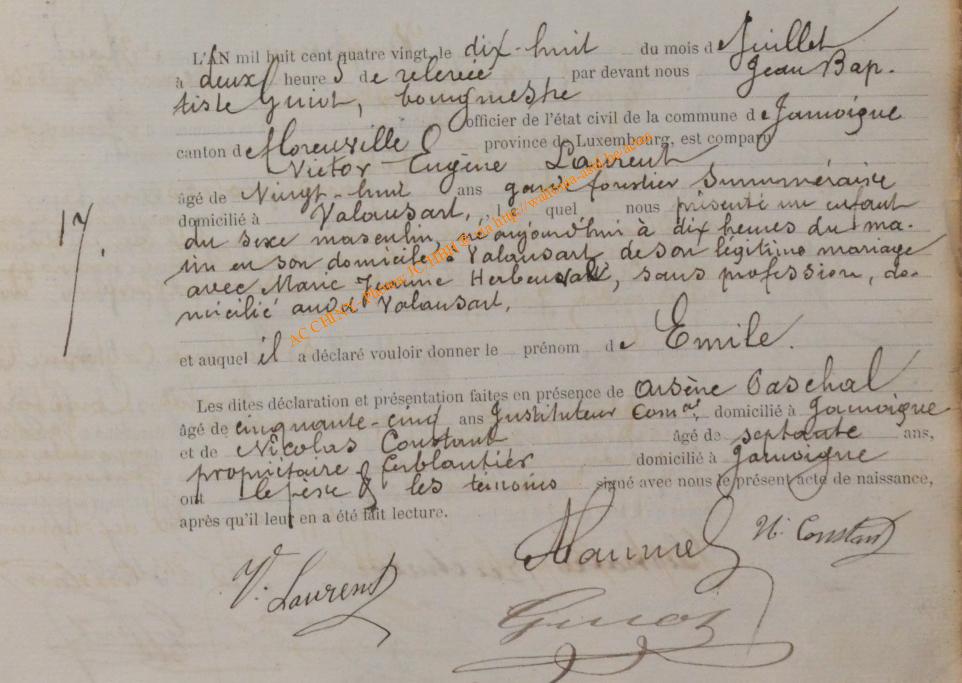 L'AN mil huit cent quatre vingt, le dix-huit du mois de Juillet
à deux heures de relevée par devant nous Jean Bap-
tiste Guiot, bourgmestre
officier de l'état civil de la commune de Jamoigne
canton de Florenville province de Luxembourg, est comparu
Victor Eugène Laurent
âgé de Vingt-huit ans garde forestier Surnuméraire
domicilié à Valansart, le quel nous présenté un enfant
du sexe masculin, né aujourd'hui à dix heures du ma-
tin en son domicile, à Valansart, de son légitime mariage
17.
avec Marie Jeanne, sans profession, do-
micilié aussi Valansart,
et auquel il a déclaré vouloir donner le prénom de Emile.
Les dites déclaration et présentation faites en présence de Arsène Paschal
âgé de cinquante-cinq ans Instituteur Com.al, domicilié à Jamoigne
et de Nicolas Constant âgé de septante ans,
propriétaire ferblantier domicilié à Jamoigne
ont le père & les témoins signé avec nous le présent acte de naissance,
après qu'il leur en a été fait lecture.
V: Laurent
N: Constant
Guiot